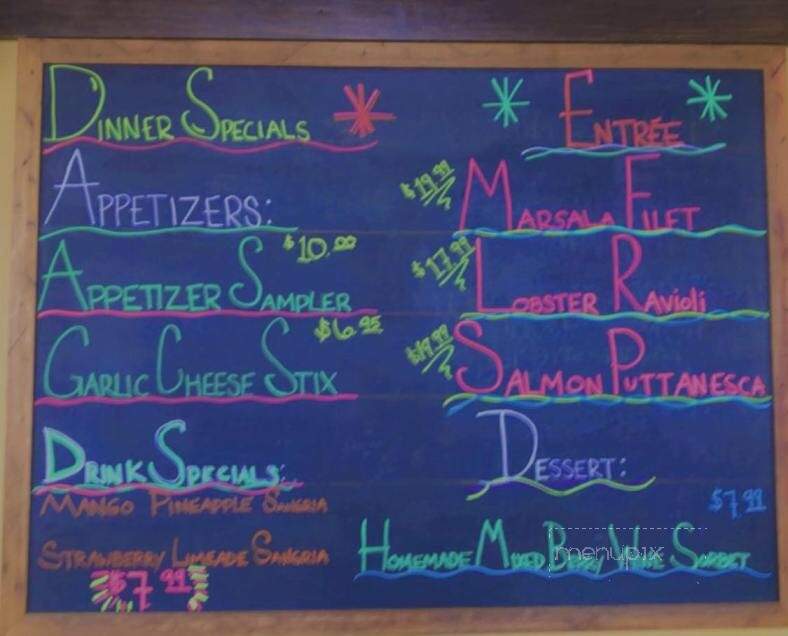 DINNER SPECIALS
APPETIZERS:
$10.00
APPETIZER SAMPLER
$6.95
GARLIC CHEESE STIX
DRINK SPECIALS:
MANGO PINEAPPLE SANGRIA
STRAWBERRY LIMEADE SANGRIA
$7.99
ENTRÉE
$19.99 MARSALA FILET
$17.99 LOBSTER RAVIOLI
$19.99 SALMON PUTTANESCA
DESSERT:
$7.99
HOMEMADE MIXED BERRY WINE SORBET
menupix